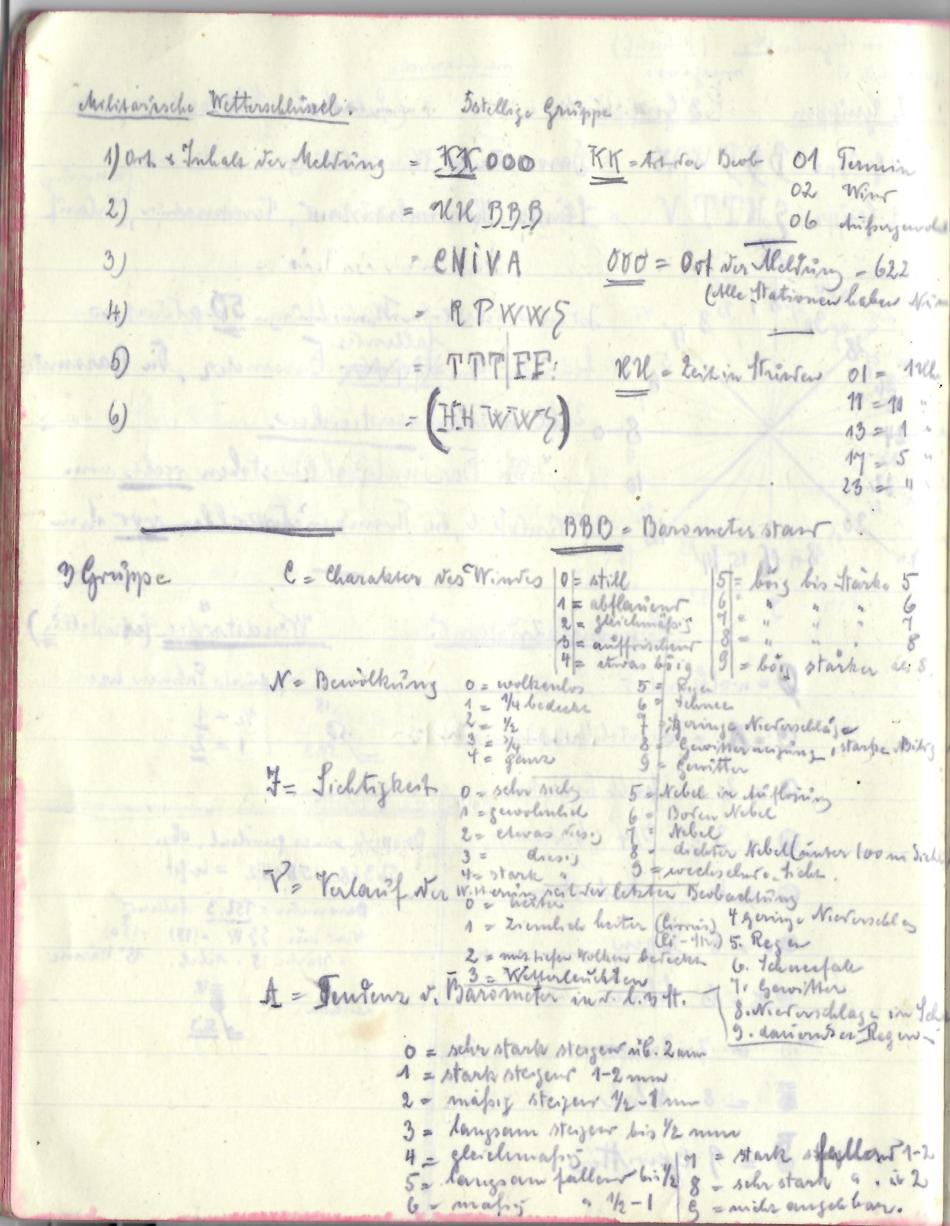 Militärische Wetterschlüssel. 5stellige Gruppe
1) Ort & Inhalt der Meldung = KKOOO KK = Art der Beob 01 Termin
02 Wind
06 Außergewöhn
2) = HHBBB
3) CNIVA OOO = Ort der Meldung - 622
(Alle Stationen haben Num
4) = RPWWS
5) = TTT|FF. HH = Zeit in Stunden 01 = 1 Uhr
11 = 10 "
6) = (HHWWS)
13 = 1 "
17 = 5 "
23 = 11 "
BBB = Barometerstand
3 Gruppe C = Charakter des Windes 0 = still 5 = böig bis Stärke 5
1 = abflauend 6 = " " " 6
2 = gleichmäßig 7 = " " " 7
3 = auffrischend 8 = " " " 8
4 = etwas böig 9 = böig stärker als 8.
N = Bewölkung 0 = wolkenlos 5 = Regen
1 = 1/4 bedeckt 6 = Schnee
2 = 1/2 7 = geringe Niederschläge
3 = 3/4 8 = Gewitterneigung, starke
4 = ganz 9 = Gewitter
I = Sichtigkeit 0 = sehr sichtig 5 = Nebel in Auflösung
1 = gewöhnlich 6 = Boden Nebel
2 = etwas diesig 7 = Nebel
3 = diesig 8 = dichter Nebel (unter 100 m Sicht
4 = stark " 9 = wechselnde Sicht.
V = Verlauf der Witterung seit der letzten Beobachtung
0 = heiter
1 = Ziemlich heiter (Cirrus) 4 geringe Niederschläg
(Ci-Str) 5. Regen
2 = mit tiefen Wolken bedeckt 6. Schneefall
3 = Wetterleuchten 7. Gewitter
A = Tendenz d. Barometer in d. l. 3 St. 8. Niederschläge in Sch
9. dauernder Regen
0 = sehr stark steigend üb. 2 mm
1 = stark steigend 1-2 mm
2 = mäßig steigend 1/2-1 mm
3 = langsam steigend bis 1/2 mm
4 = gleichmäßig 7 = stark fallend 1-2
5 = langsam fallend bis 1/2 8 = sehr stark " . üb 2
6 = mäßig " 1/2-1 9 = nicht angebbar.